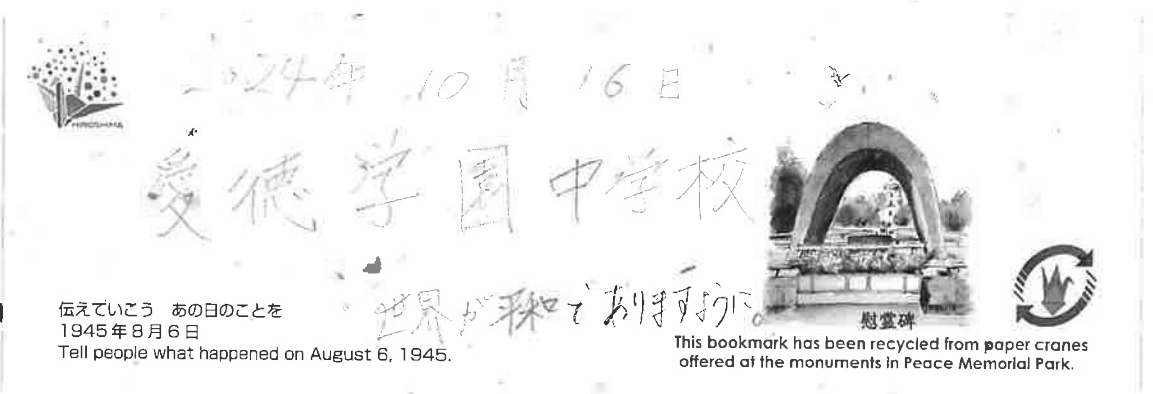 HIROSHIMA
2024年 10月 16日
愛徳学園中学校
世界が平和でありますように。
伝えていこう あの日のことを
1945年8月6日
Tell people what happened on August 6, 1945.
慰霊碑
This bookmark has been recycled from paper cranes
offered at the monuments in Peace Memorial Park.